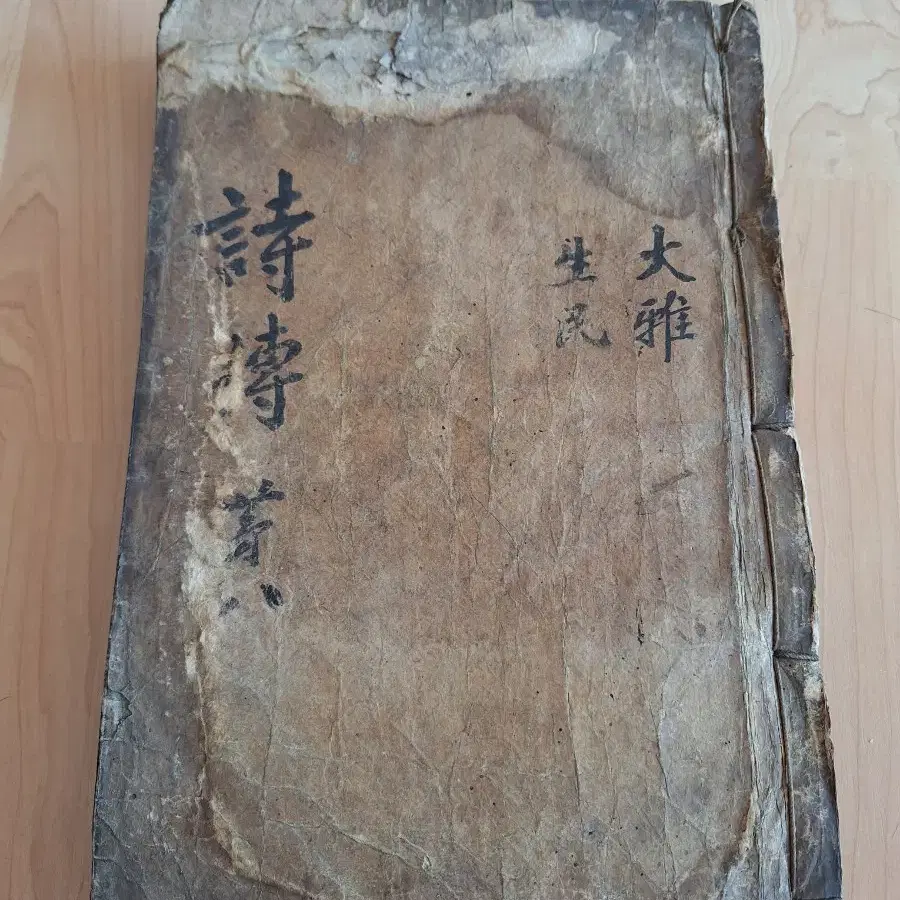 大雅
生民
詩傳 苐八